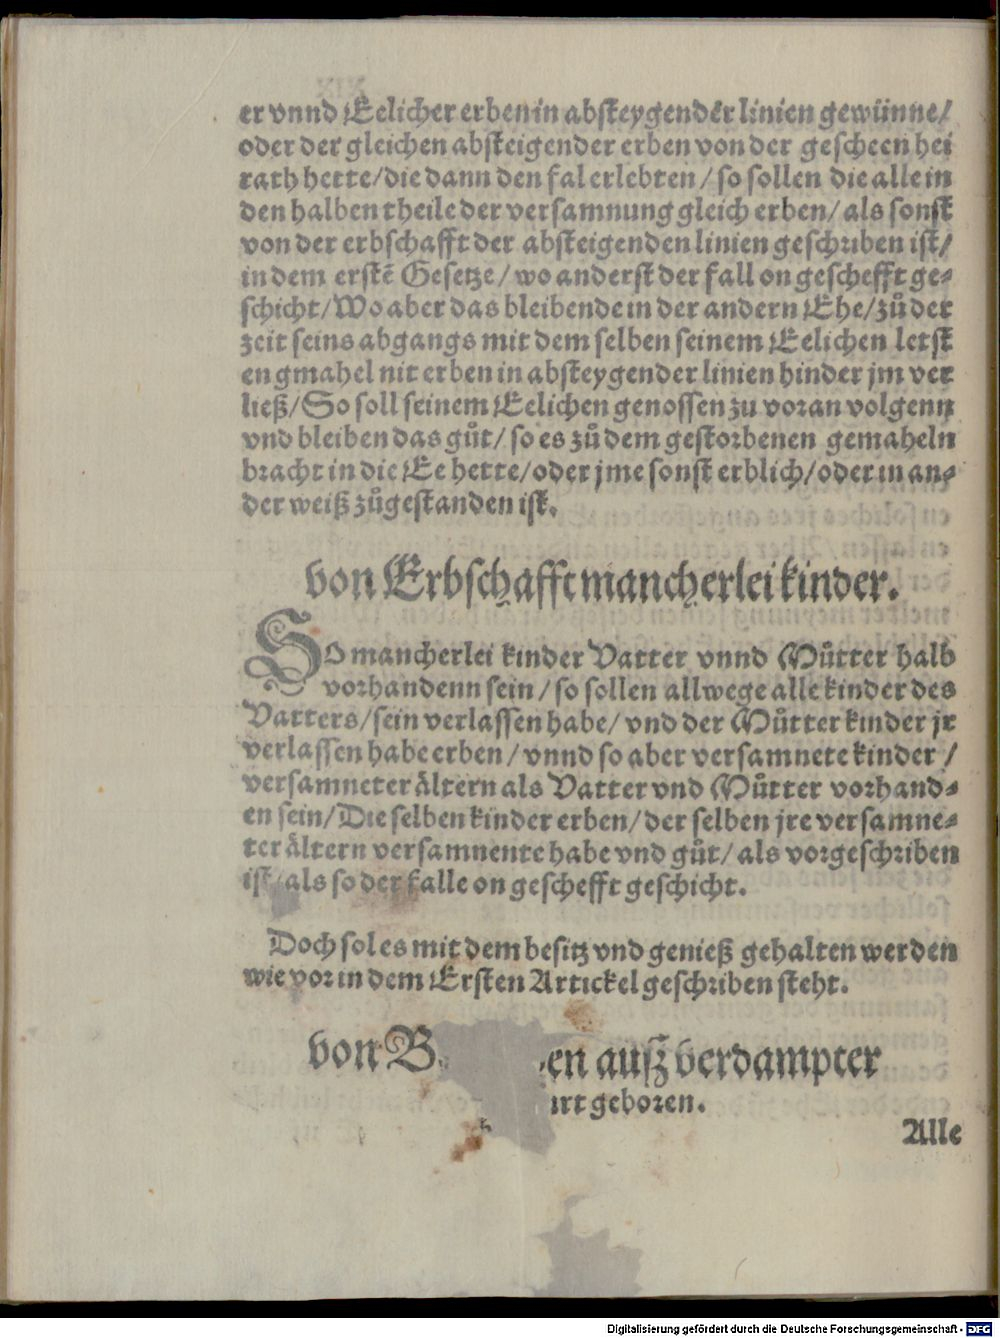 er vnnd Eelicher erben in absteygender linien gewünne/
oder der gleichen absteigender erben von der gescheen hei
rath hette/die dann den fal erlebten/so sollen die alle in
den halben theile der versamnung gleich erben/als sonst
von der erbschafft der absteigenden linien geschriben ist/
in dem erstē Gesetze/wo anderst der fall on geschefft ge⸗
schicht/Wo aber das bleibende in der andern Ehe/zů der
zeit seins abgangs mit dem selben seinem Eelichen letst
en gmahel nit erben in absteygender linien hinder jm ver
ließ/So soll seinem Eelichen genossen zu voran volgenn
vnd bleiben das gůt/so es zů dem gestorbenen gemaheln
bracht in die Ee hette/oder jme sonst erblich/oder in an⸗
der weiß zůgestanden ist.
von Erbschafft mancherlei kinder.
SO mancherlei kinder Vatter vnnd Můtter halb
vorhandenn sein/so sollen allwege alle kinder des
Vatters/sein verlassen habe/vnd der Můtter kinder jr
verlassen habe erben/vnnd so aber versamnete kinder/
versamneter ältern als Vatter vnd Můtter vorhand⸗
en sein/Die selben kinder erben/der selben jre versamne⸗
ter ältern versamnente habe vnd gůt/als vorgeschriben
ist/als so der falle on geschefft geschicht.
Doch sol es mit dem besitz vnd genieß gehalten werden
wie vor in dem Ersten Artickel geschriben steht.
von B en auß verdampter
urt geboren.
Alle
Digitalisierung gefördert durch die Deutsche Forschungsgemeinschaft - DFG